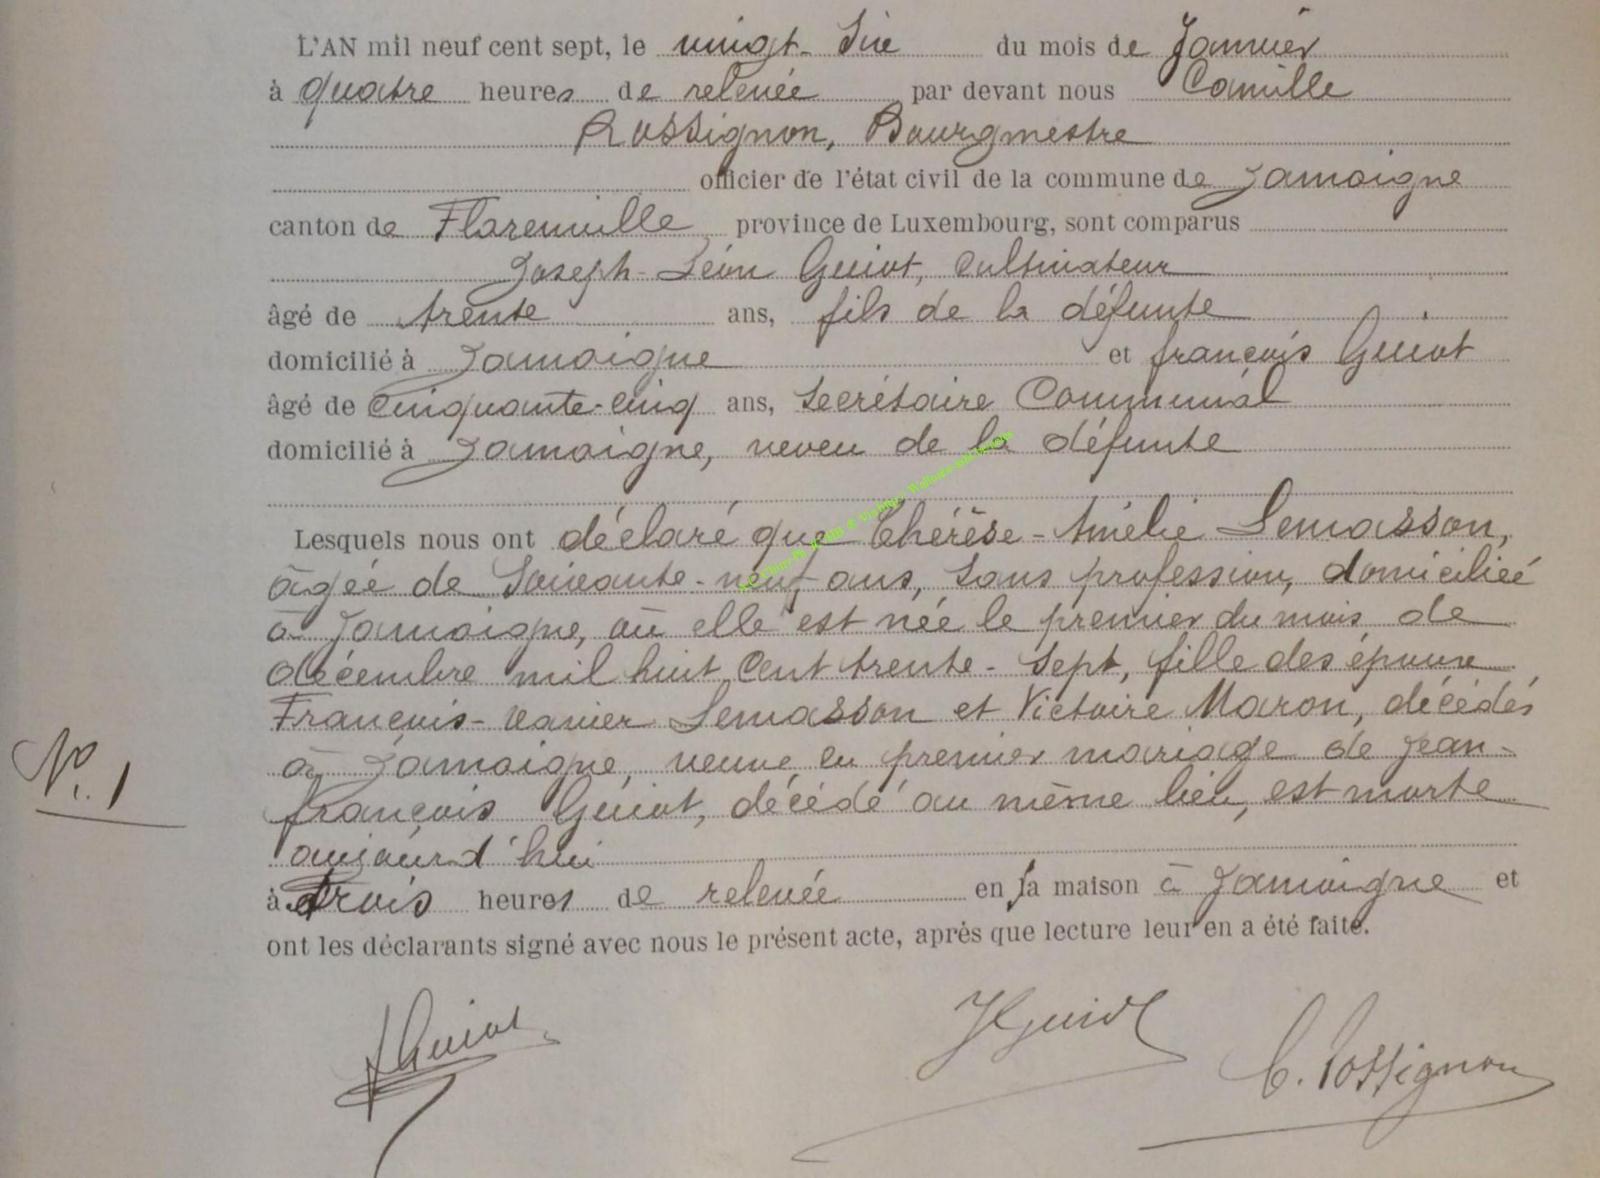 L'AN mil neuf cent sept, le vingt-six du mois de Janvier
à quatre heures de relevée par devant nous Camille
Rossignon, Bourgmestre
officier de l'état civil de la commune de Jamoigne
canton de Florenville province de Luxembourg, sont comparus
Joseph-Léon Guiot, Cultivateur
âgé de trente ans, fils de la défunte
domicilié à Jamoigne et françois Guiot
âgé de Cinquante-cinq ans, Secrétaire Communal
domicilié à Jamoigne, neveu de la défunte
Lesquels nous ont déclaré que Thérèse-Amélie Lemasson,
âgée de Soixante-neuf ans, Sans profession, domiciliée
à Jamoigne, où elle est née le premier du mois de
décembre mil huit Cent trente-Sept, fille des époux
François-Xavier Lemasson et Victoire Maron, décédés
à Jamoigne, veuve en premier mariage de Jean-
françois Guiot, décédé au même lieu, est morte
N° 1
aujourd'hui
à trois heures de relevée en sa maison à Jamoigne et
ont les déclarants signé avec nous le présent acte, après que lecture leur en a été faite.
FGuiot JGuiot C. Rossignon